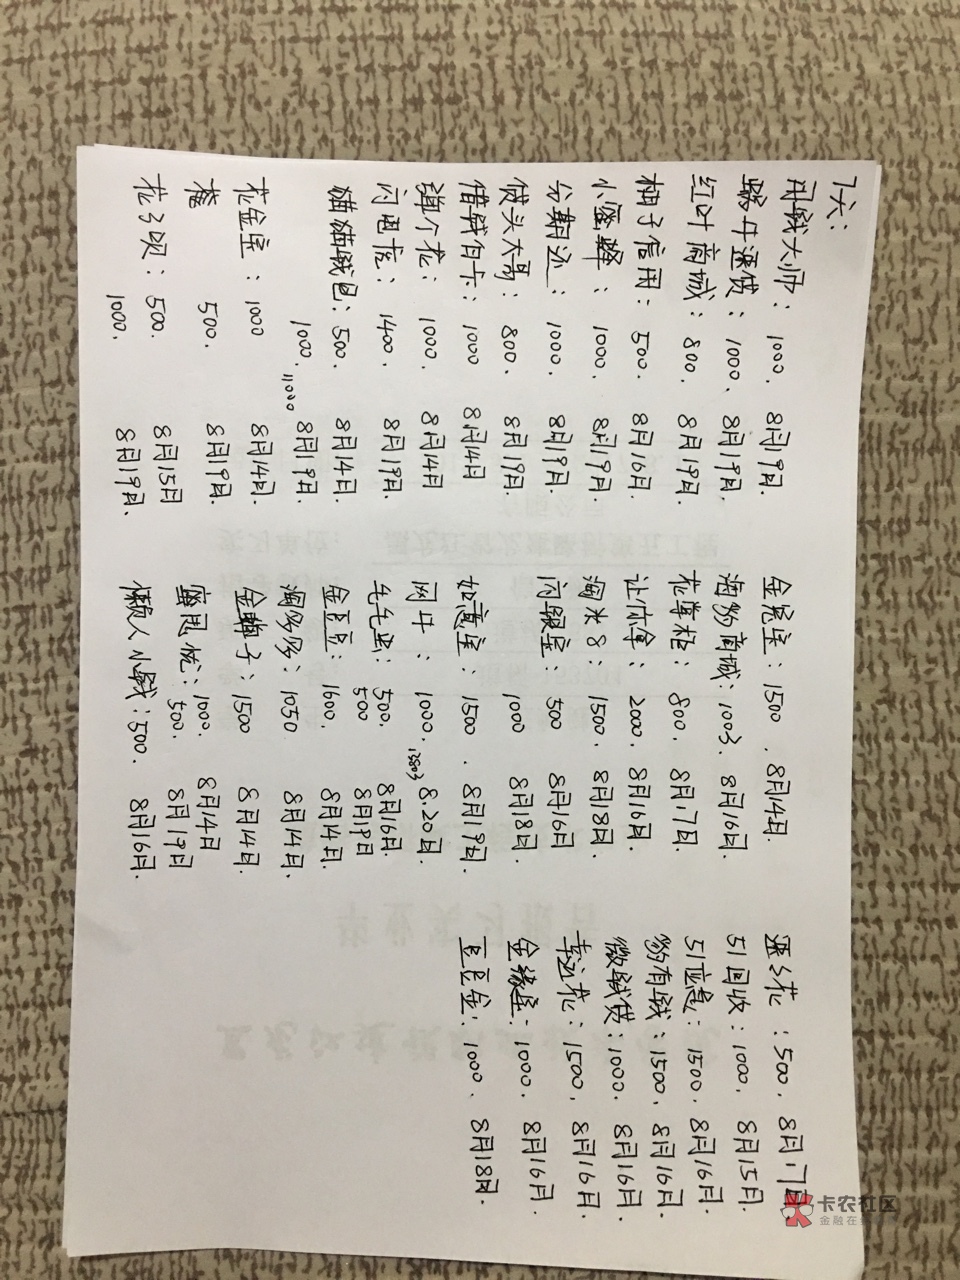 7六:
用钱大师: 1000. 8月19日.
蹄牛速贷: 1000. 8月19日
红叶商城: 800. 8月19日.
柚子信用: 500. 8月16日.
小蜜蜂: 1000. 8月19日.
分期还: 1000. 8月19日.
披头大哥: 800. 8月19日.
借钱白卡: 1000 8月14日
弹个花: 1000. 8月14日
闪电虎: 1400. 8月19日.
猫猫钱包: 500. 8月14日.
1000. 8月19日.
11000
花金宝: 1000 8月14日.
500. 8月19日.
花多呗: 500. 8月15日
1000. 8月19日.
金元宝: 1500. 8月14日.
海豹商城: 1003. 8月16日.
花掌柜: 800. 8月17日.
让你拿: 2000. 8月16日.
淘米8: 1500. 8月18日.
闪银宝: 500 8月16日
1000 8月18日.
如意宝: 1500. 8月19日.
网牛: 1000. 8.20日.
毛毛虫: 500. 8月16日.
500 8月19日
金豆豆: 1600. 8月14日.
淘多多: 1050 8月14日.
金鞭子: 1500 8月14日.
1000. 8月14日
500. 8月19日
懒人小钱: 500. 8月16日.
逐多花: 500. 8月17日.
51回收: 1000. 8月15日.
51应急: 1500. 8月16日
豹有钱: 1500. 8月16日.
微钱贷: 1000. 8月16日
幸运花: 1500. 8月16日.
金缘宝: 1000. 8月16日
豆豆金: 1000. 8月18日.
卡农社区